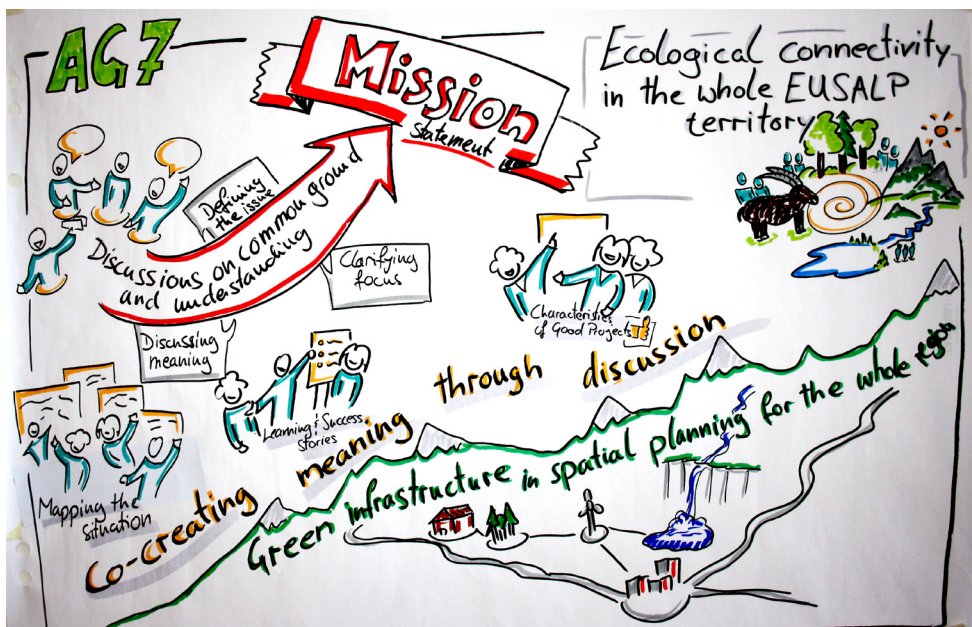 AG7
Mission
Statement
Ecological connectivity
in the whole EUSALP
territory
Defining
the issue
Discussions on common ground
and understanding
Clarifying
focus
Discussing
meaning
Characteristics
of Good Projects
Learning & Success
Stories
Mapping the
situation
Co-creating meaning through discussion
Green infrastructure in spatial planning for the whole region